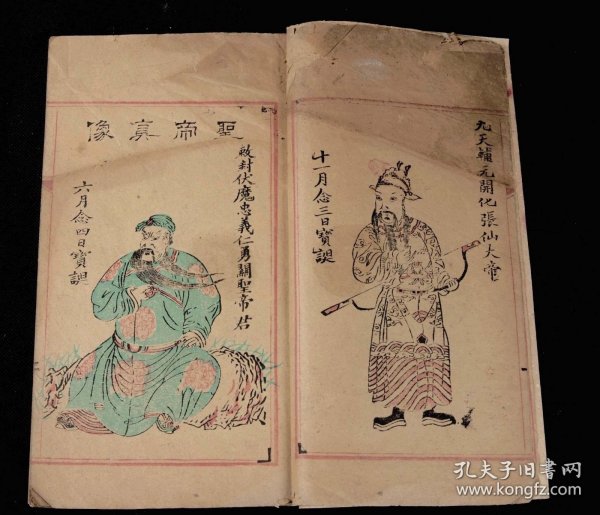 九天輔元開化張仙大帝
十一月念三日寳誕
聖帝真像
敕封伏魔忠義仁勇關聖帝君
六月念四日寳誕
孔夫子旧書网
www.kongfz.com